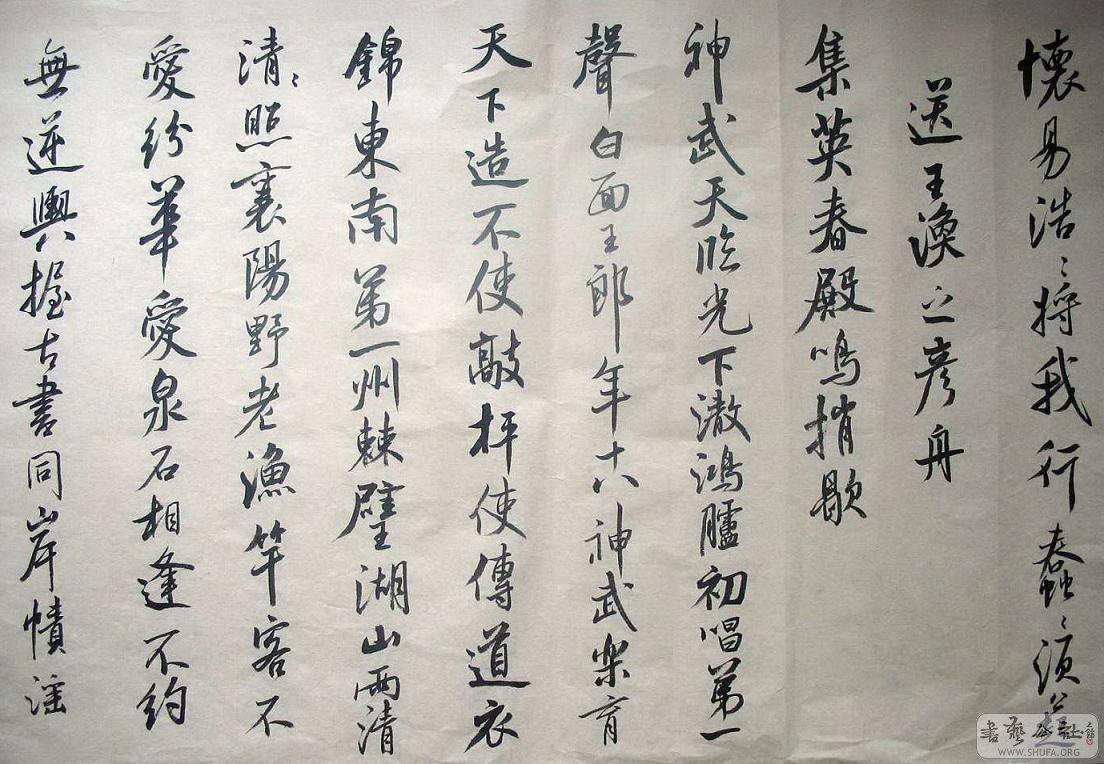 懷易浩〻將我行蠢〻須公
送王渙之彥舟
集英春殿鳴捎歇
神武天臨光下澈鴻臚初唱第一
聲白面王郎年十八神武樂育
天下造不使敲枰使傳道衣
錦東南第一州棘璧湖山兩清
清〻照襄陽野老漁竿客不
愛紛華愛泉石相逢不約
無逆輿握古書同岸幘淫
書藝公社
WWW.SHUFA.ORG